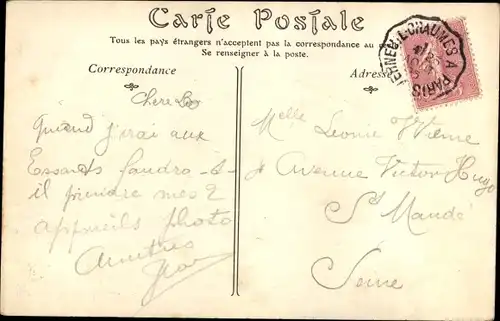 Carte Postale
Tous les pays étrangers n'acceptent pas la correspondance au
Se renseigner à la poste.
Correspondance
Adresse
VERNEUIL-CHAUMES A PARIS
Chère
Quand j'irai aux
Essarts faudra-t-
il prendre mes 2
appareils photo
Amitiés
Jean
Melle Léonie
Avenue Victor Hugo
St Mandé
Seine